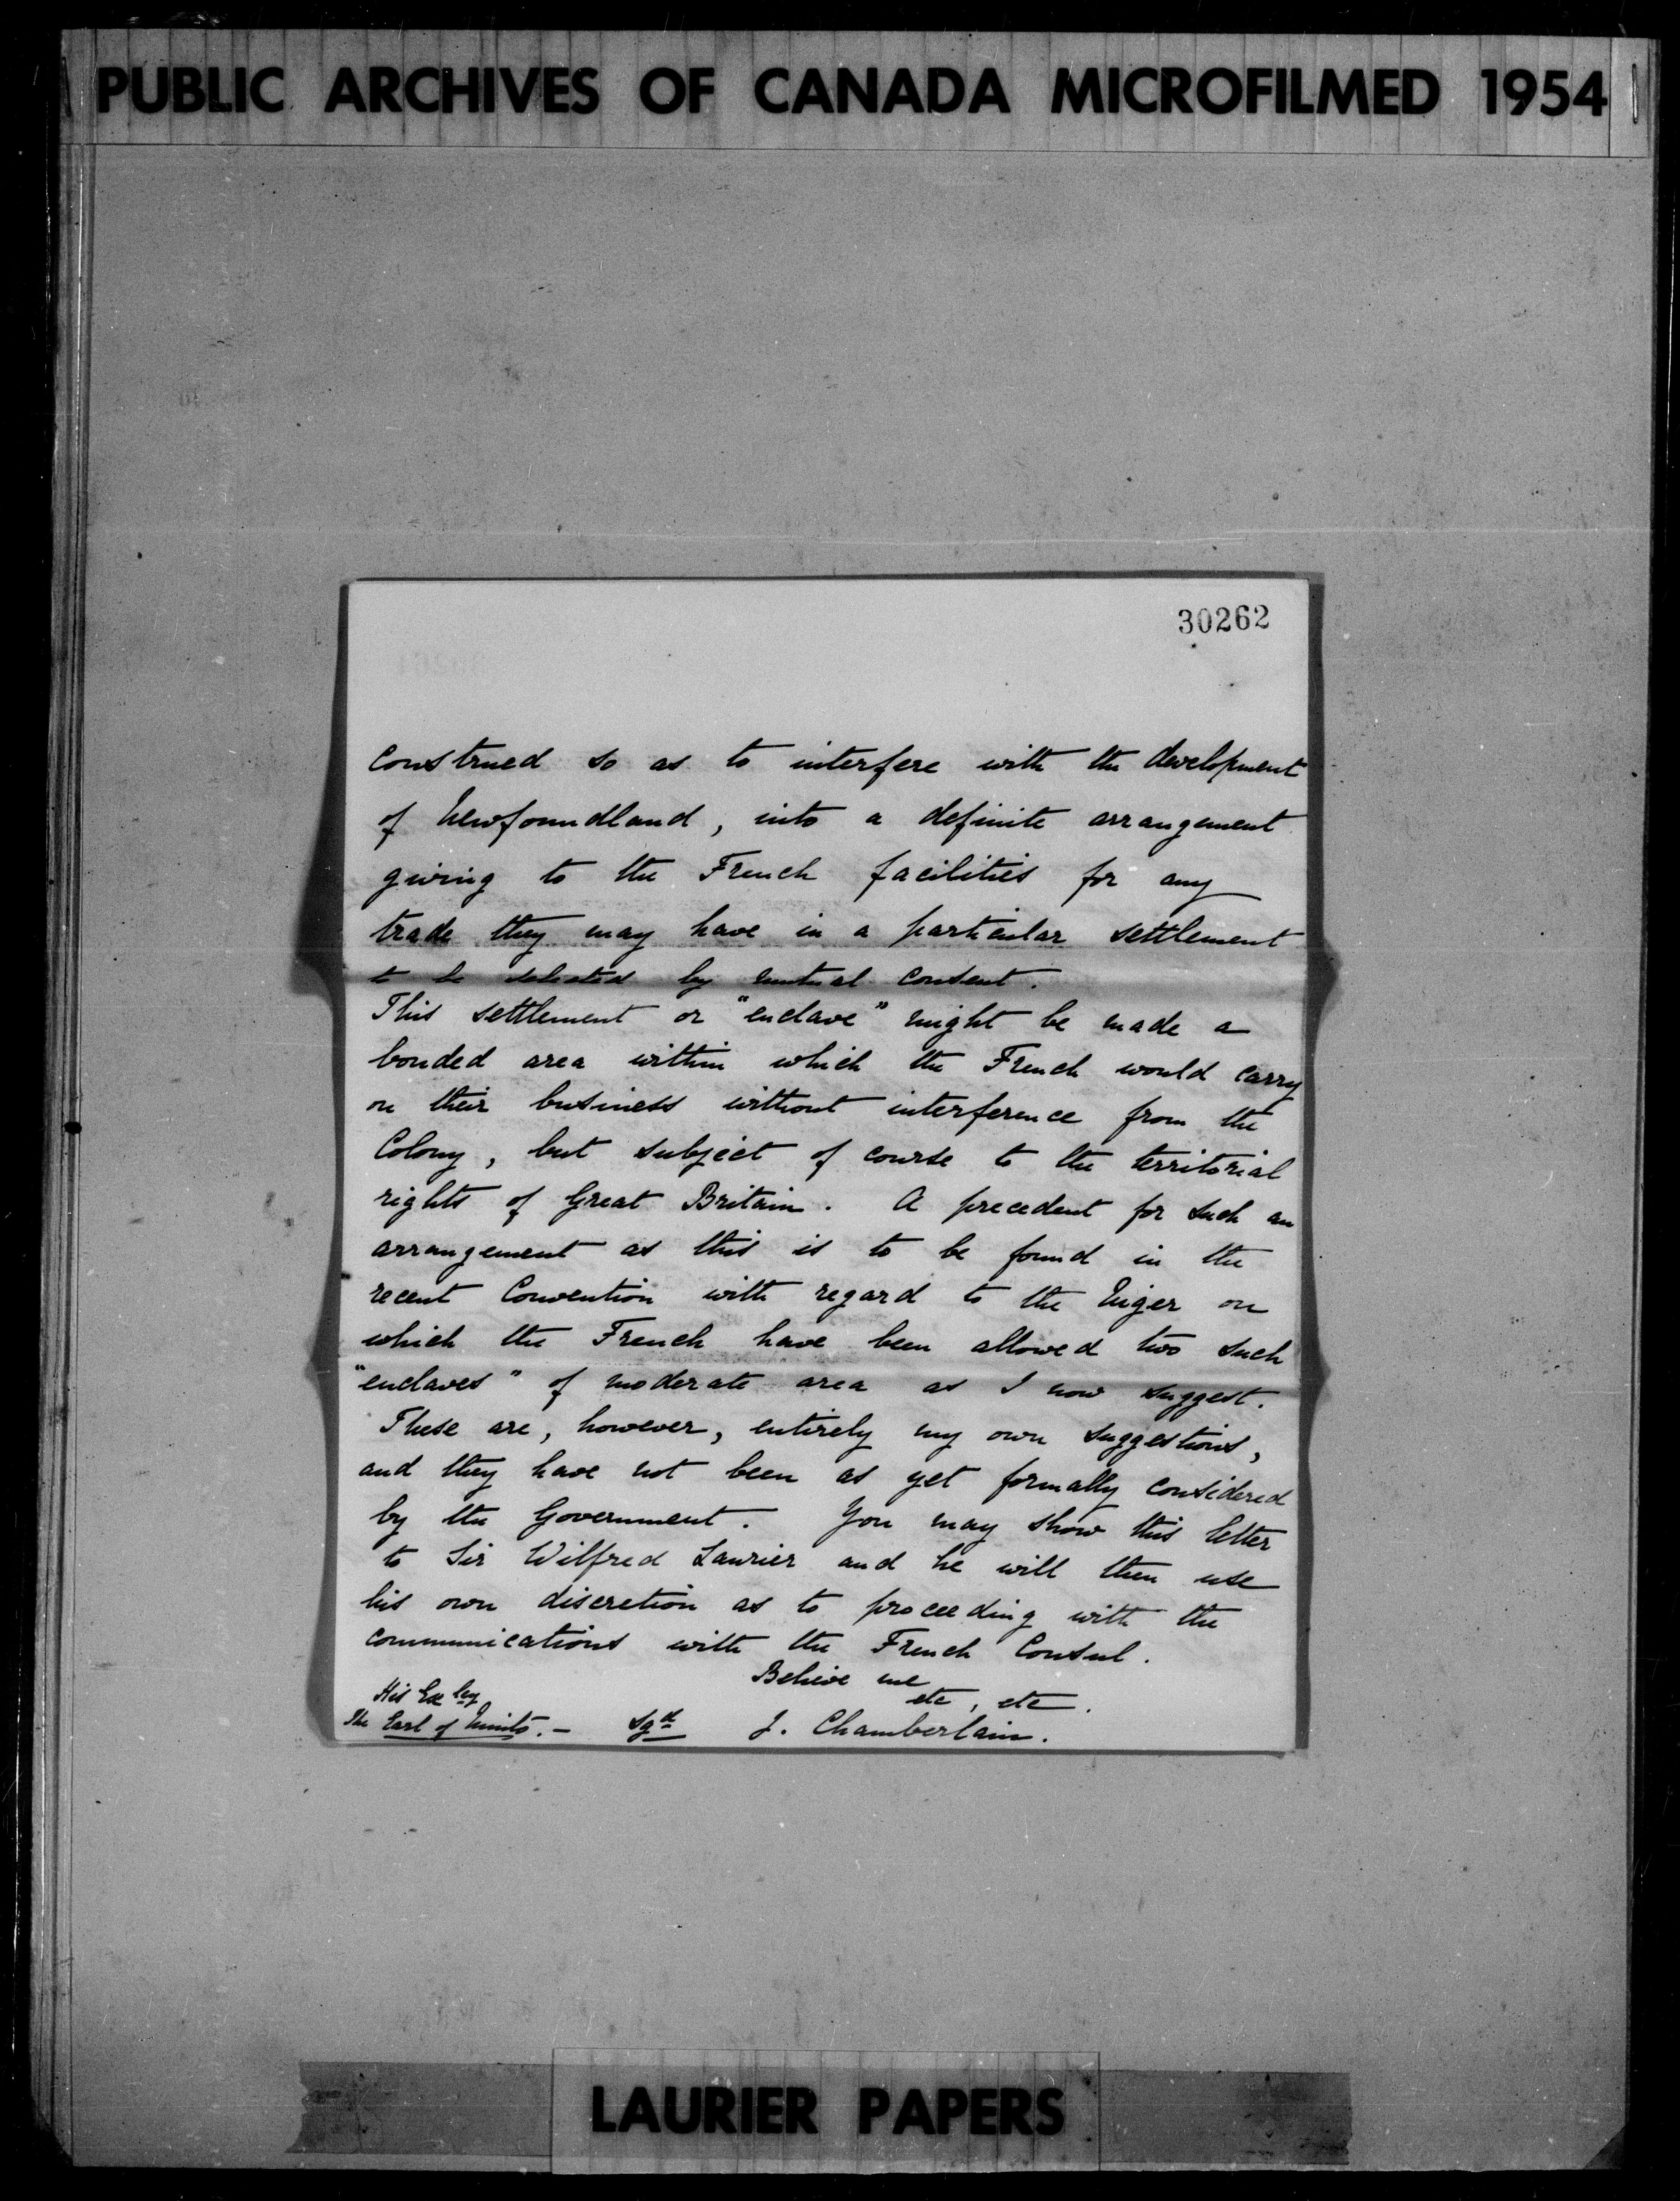 PUBLIC ARCHIVES OF CANADA MICROFILMED 1954
30262
construed so as to interfere with the development
of Newfoundland, into a definite arrangement
giving to the French facilities for any
trade they may have in a particular settlement
to be selected by mutual consent.
This settlement or "enclave" might be made a
bonded area within which the French would carry
on their business without interference from the
Colony, but subject of course to the territorial
rights of Great Britain. A precedent for such an
arrangement as this is to be found in the
recent Convention with regard to the Niger on
which the French have been allowed two such
"enclaves" of moderate area as I now suggest.
These are, however, entirely my own suggestions,
and they have not been as yet formally considered
by the Government. You may show this letter
to Sir Wilfred Laurier and he will then use
his own discretion as to proceeding with the
communications with the French Consul.
Believe me
etc, etc.
His Excley
The Earl of Minto.— Sgd J. Chamberlain.
LAURIER PAPERS